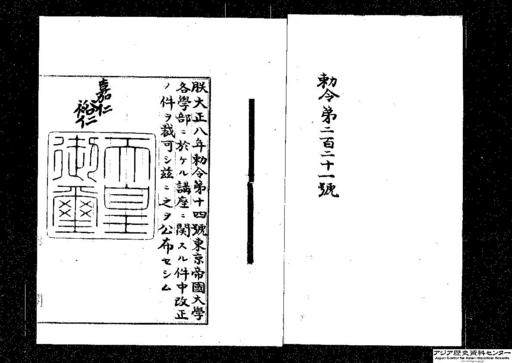 勅令第二百二十一號
朕大正八年勅令第十四號東京帝國大學
各學部ニ於ケル講座ニ關スル件中改正
ノ件ヲ裁可シ茲ニ之ヲ公布セシム
嘉仁
裕仁
天皇
御璽
アジア歴史資料センター
Japan Center for Asian Historical Records